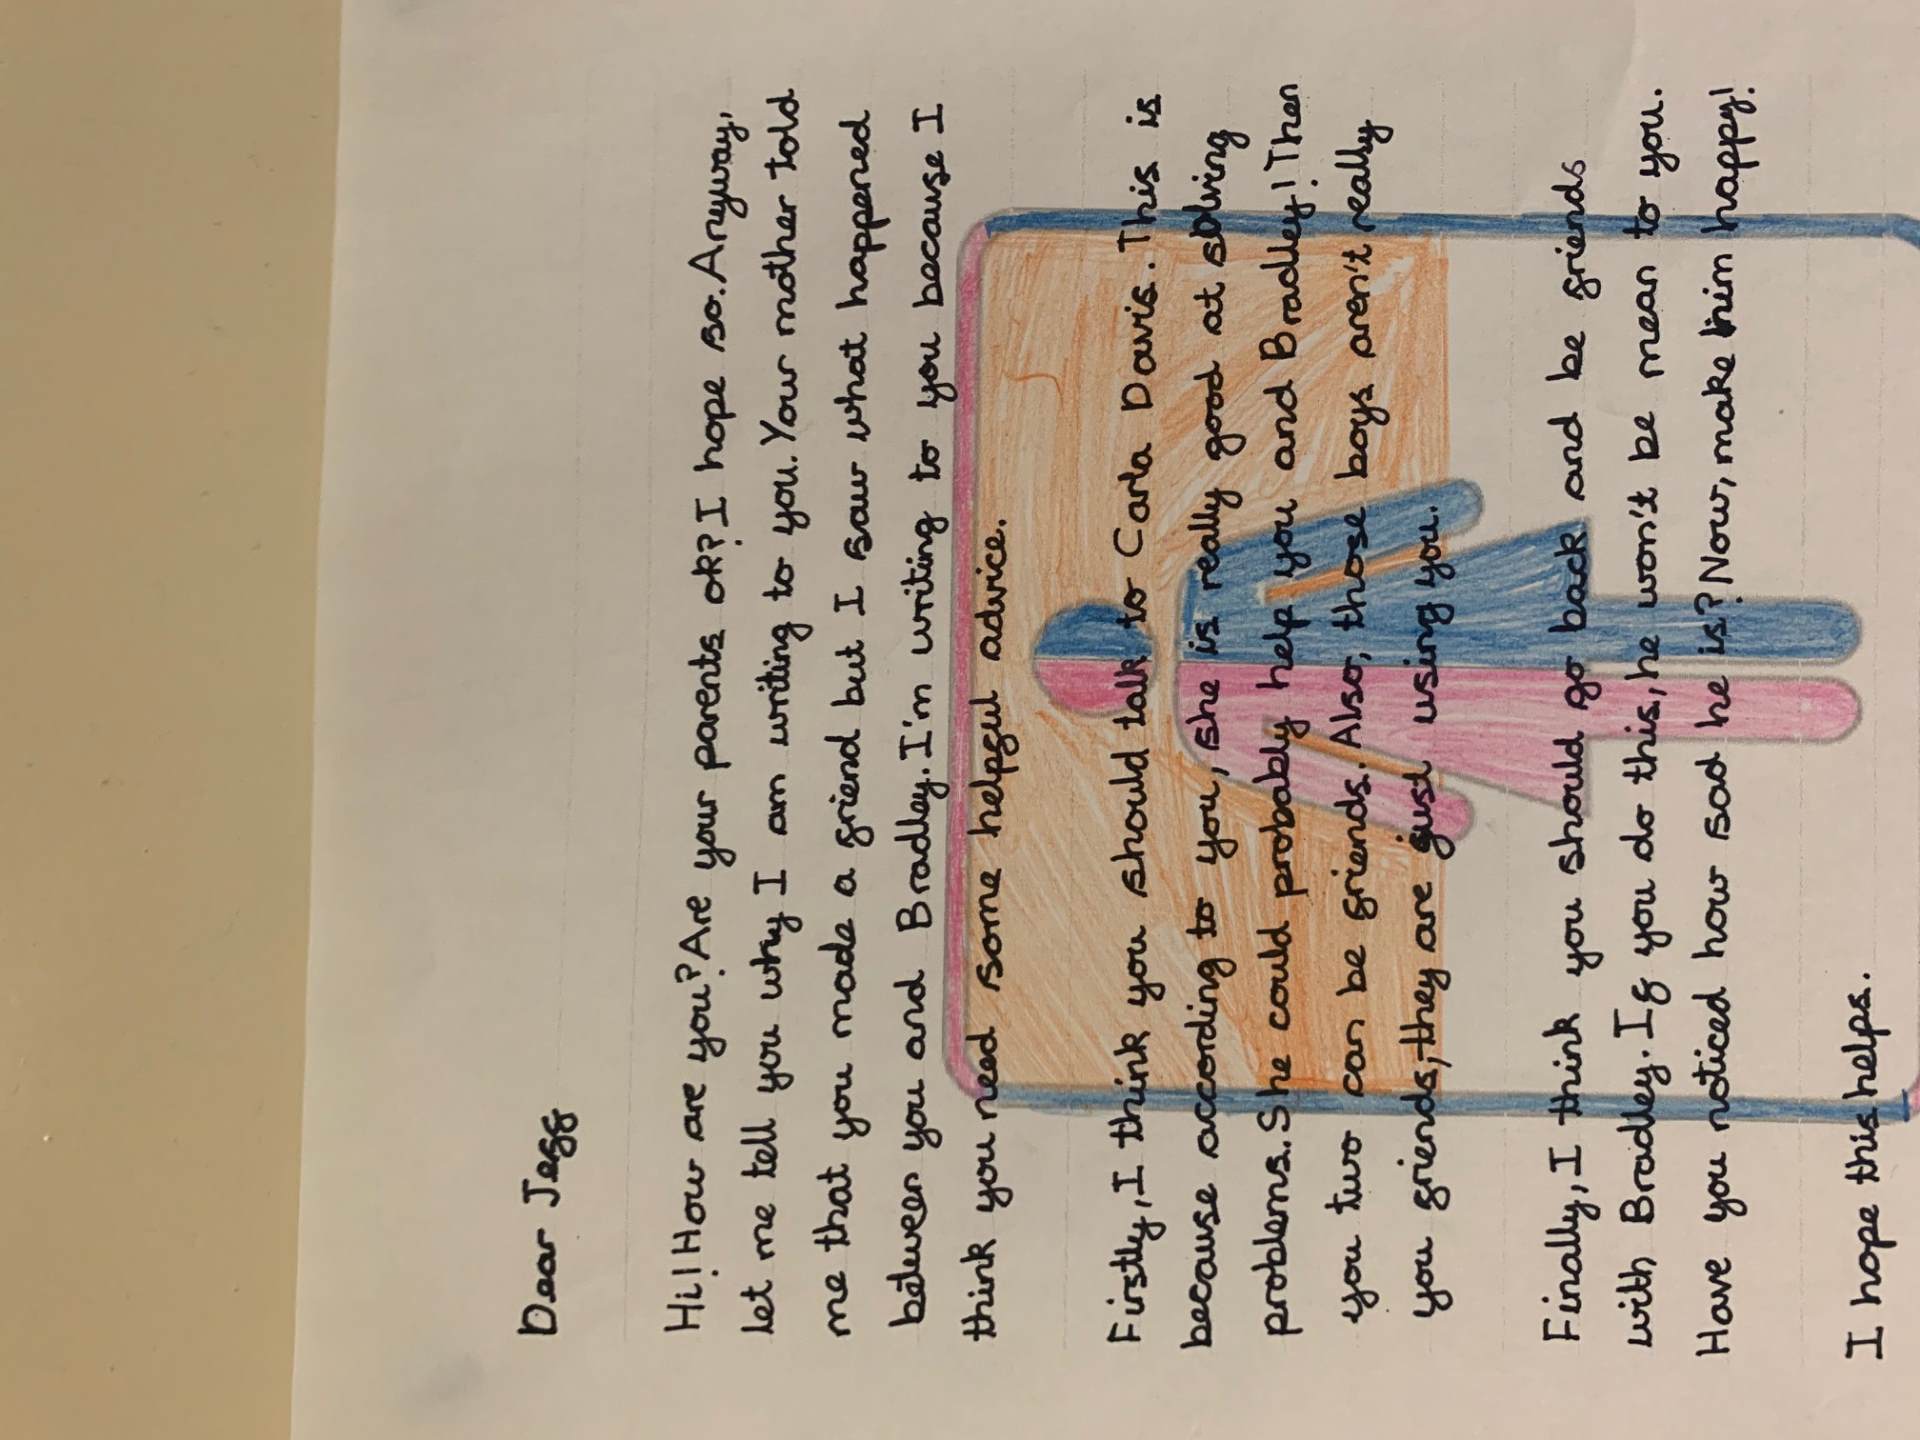 Dear Jeff
Hi! How are you? Are your parents ok? I hope so. Anyway,
let me tell you why I am writing to you. Your mother told
me that you made a friend but I saw what happened
between you and Bradley. I'm writing to you because I
think you need some helpful advice.
Firstly, I think you should talk to Carla Davis. This is
because according to you, she is really good at solving
problems. She could probably help you and Bradley! Then
you two can be friends. Also, those boys aren't really
you friends, they are just using you.
Finally, I think you should go back and be friends
with Bradley. If you do this, he won't be mean to you.
Have you noticed how sad he is? Now, make him happy!
I hope this helps.